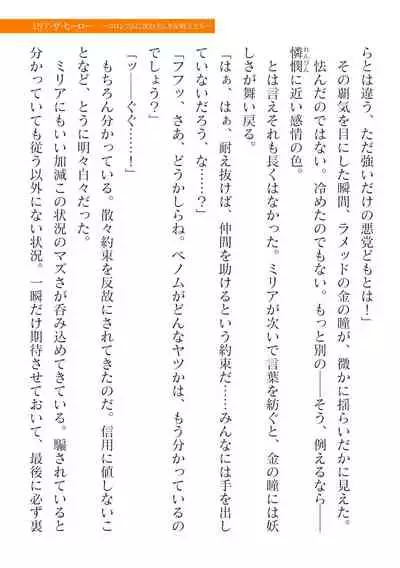 ミリア・ザ・ヒーロー
らとは違う、ただ強いだけの悪党どもとは！」
その覇気を目にした瞬間、ラメッドの金の瞳が、微かに揺らいだかに見えた。
怯んだのではない。冷めたのでもない。もっと別の――そう、例えるなら――
憐憫に近い感情の色。
れんびん
とは言えそれも長くはなかった。ミリアが次いで言葉を紡ぐと、金の瞳には妖
しさが舞い戻る。
「はぁ、はぁ、耐え抜けば、仲間を助けるという約束だ……みんなには手を出し
ていないだろう、な……？」
「フフッ、さあ、どうかしらね。ベノムがどんなヤツかは、もう分かっているの
でしょう？」
「ッ――ぐぐ……！」
もちろん分かっている。散々約束を反故にされてきたのだ。信用に値しないこ
となど、とうに明々白々だった。
ミリアにもいい加減この状況のマズさが呑み込めてきている。騙されていると
分かっていても従う以外にない状況。一瞬だけ期待させておいて、最後に必ず裏